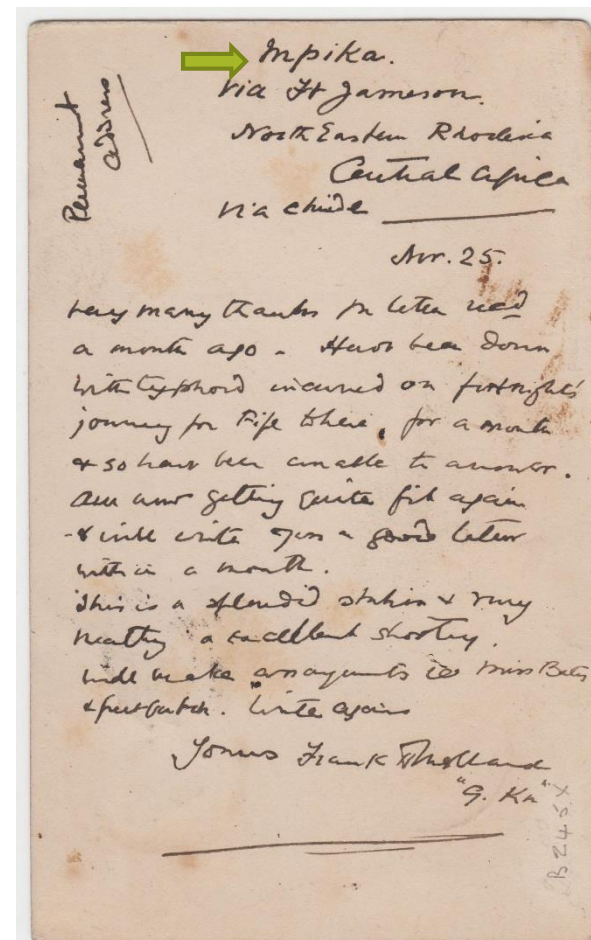 Mpika.
Via Ft Jameson.
North Eastern Rhodesia
Central Africa
Via Chinde
Permanent
address
Nov. 25.
Very many thanks for letter recd
a month ago. Have been down
with typhoid incurred on fortnight's
journey from Fife to here, for a month
& so have been unable to answer.
Am now getting quite fit again
& will write you a good letter
within a month.
This is a splendid station & very
healthy & excellent shooting.
Will make arrangements re Miss
Write again
Yours Frank
"G. Kn"
B245X